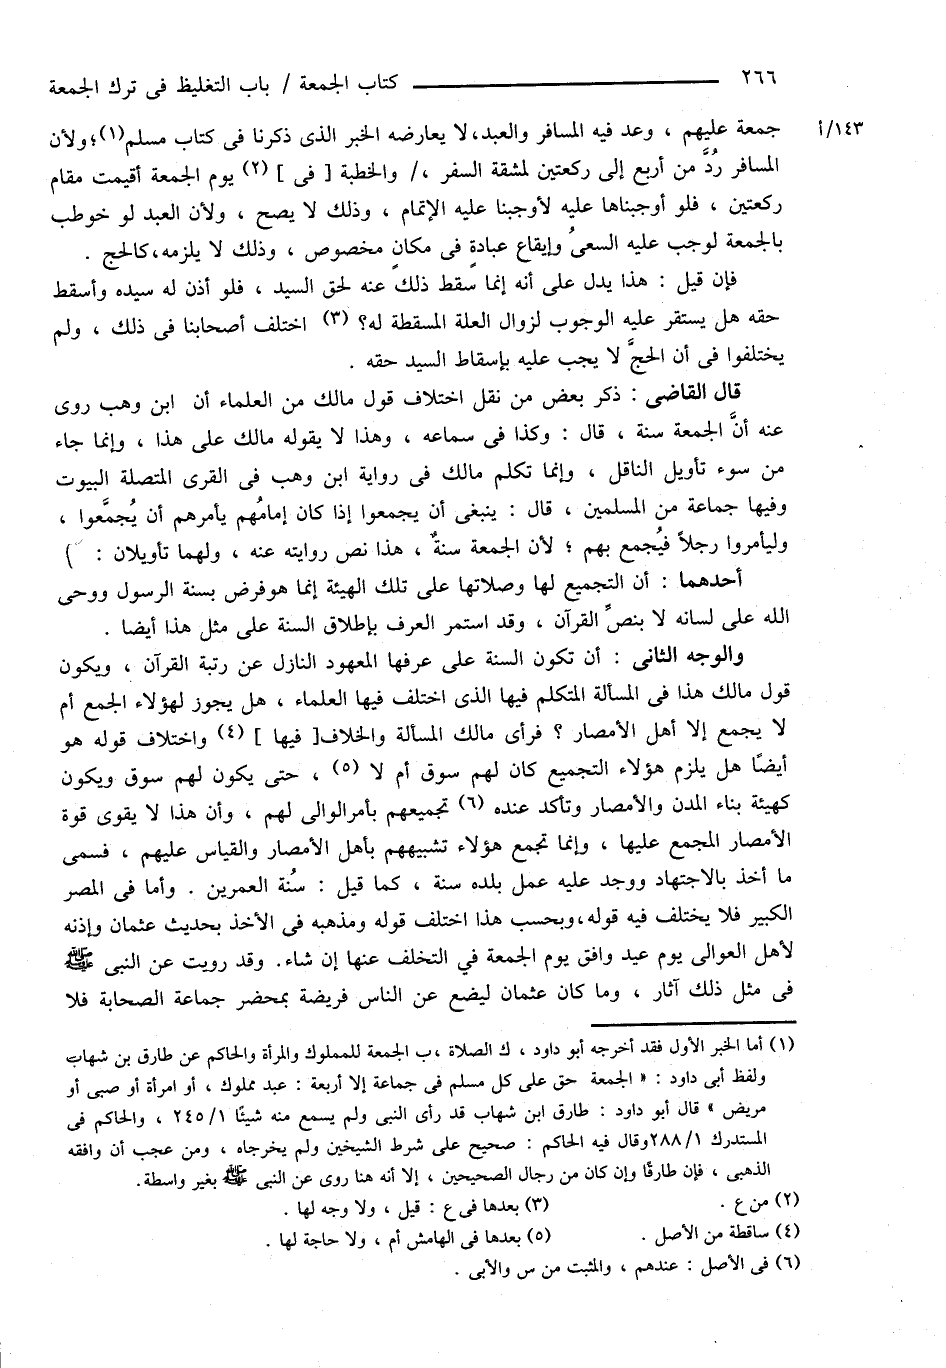 ٢٦٦ كتاب الجمعة / باب التغليظ فى ترك الجمعة
١٤٣/أ
جمعة عليهم ، وعد فيه المسافر والعبد،لا يعارضه الخبر الذى ذكرنا فى كتاب مسلم(١)؛ولأن
المسافر رُدَّ من أربع إلى ركعتين لمشقة السفر ،/ والخطبة [ فى ] (٢) يوم الجمعة أقيمت مقام
ركعتين ، فلو أوجبناها عليه لأوجبنا عليه الإتمام ، وذلك لا يصح ، ولأن العبد لو خوطب
بالجمعة لوجب عليه السعىُ وإيقاع عبادةٍ فى مكانٍ مخصوص ، وذلك لا يلزمه،كالحج .
فإن قيل : هذا يدل على أنه إنما سقط ذلك عنه لحق السيد ، فلو أذن له سيده وأسقط
حقه هل يستقر عليه الوجوب لزوال العلة المسقطة له؟ (٣) اختلف أصحابنا فى ذلك ، ولم
يختلفوا فى أن الحجَّ لا يجب عليه بإسقاط السيد حقه .
قال القاضى : ذكر بعض من نقل اختلاف قول مالك من العلماء أن ابن وهب روى
عنه أنَّ الجمعة سنة ، قال : وكذا فى سماعه ، وهذا لا يقوله مالك على هذا ، وإنما جاء
من سوء تأويل الناقل ، وإنما تكلم مالك فى رواية ابن وهب فى القرى المتصلة البيوت
وفيها جماعة من المسلمين ، قال : ينبغى أن يجمعوا إذا كان إمامُهم يأمرهم أن يُجمَّعوا ،
وليأمروا رجلاً فيُجمع بهم ؛ لأن الجمعة سنةٌ ، هذا نص روايته عنه ، ولهما تأويلان :
أحدهما : أن التجميع لها وصلاتها على تلك الهيئة إنما هوفرض بسنة الرسول ووحى
الله على لسانه لا بنصِّ القرآن ، وقد استمر العرف بإطلاق السنة على مثل هذا أيضا .
والوجه الثانى : أن تكون السنة على عرفها المعهود النازل عن رتبة القرآن ، ويكون
قول مالك هذا فى المسألة المتكلم فيها الذى اختلف فيها العلماء ، هل يجوز لهؤلاء الجمع أم
لا يجمع إلا أهل الأمصار ؟ فرأى مالك المسألة والخلاف[ فيها ] (٤) واختلاف قوله هو
أيضًا هل يلزم هؤلاء التجميع كان لهم سوق أم لا (٥) ، حتى يكون لهم سوق ويكون
كهيئة بناء المدن والأمصار وتأكد عنده (٦) تجميعهم بأمرالوالى لهم ، وأن هذا لا يقوى قوة
الأمصار المجمع عليها ، وإنما تجمع هؤلاء تشبيههم بأهل الأمصار والقياس عليهم ، فسمى
ما أخذ بالاجتهاد ووجد عليه عمل بلده سنة ، كما قيل : سُنة العمرين . وأما فى المصر
الكبير فلا يختلف فيه قوله،وبحسب هذا اختلف قوله ومذهبه فى الأخذ بحديث عثمان وإذنه
لأهل العوالى يوم عيد وافق يوم الجمعة في التخلف عنها إن شاء. وقد رويت عن النبى ﷺ
فى مثل ذلك آثار ، وما كان عثمان ليضع عن الناس فريضة بمحضر جماعة الصحابة فلا
(١) أما الخبر الأول فقد أخرجه أبو داود ، ك الصلاة ،ب الجمعة للمملوك والمرأة والحاكم عن طارق بن شهاب
ولفظ أبى داود : « الجمعة حق على كل مسلم فى جماعة إلا أربعة : عبد مملوك ، أو امرأة أو صبى أو
مريض » قال أبو داود : طارق ابن شهاب قد رأى النبى ولم يسمع منه شيئًا ٢٤٥/١ ، والحاكم فى
المستدرك ٢٨٨/١وقال فيه الحاكم : صحيح على شرط الشيخين ولم يخرجاه ، ومن عجب أن وافقه
الذهبى ، فإن طارقًا وإن كان من رجال الصحيحين ، إلا أنه هنا روى عن النبى ﷺ بغير واسطة.
(٢) من ع . (٣) بعدها فى ع : قيل ، ولا وجه لها .
(٤) ساقطة من الأصل . (٥) بعدها فى الهامش أم ، ولا حاجة لها .
(٦) فى الأصل : عندهم ، والمثبت من س والأبى .